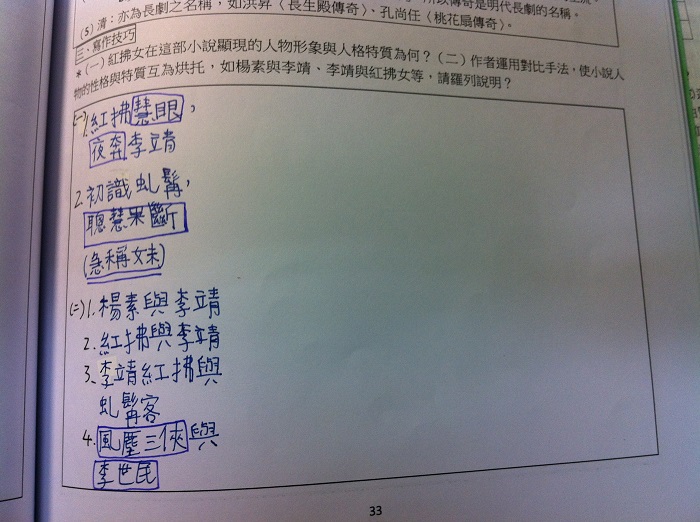 (5) 清：亦為長劇之名稱，如洪昇〈長生殿傳奇〉、孔尚任〈桃花扇傳奇〉。
三、寫作技巧
＊(一)紅拂女在這部小說顯現的人物形象與人格特質為何？(二)作者運用對比手法，使小說人
物的性格與特質互為烘托，如楊素與李靖、李靖與紅拂女等，請羅列說明？
(一)1.紅拂慧眼，
夜奔李靖
2.初識虬髯，
聰慧果斷
(急稱妹)
(二)1.楊素與李靖
2.紅拂與李靖
3.李靖紅拂與
虬髯客
4.風塵三俠與
李世民
33